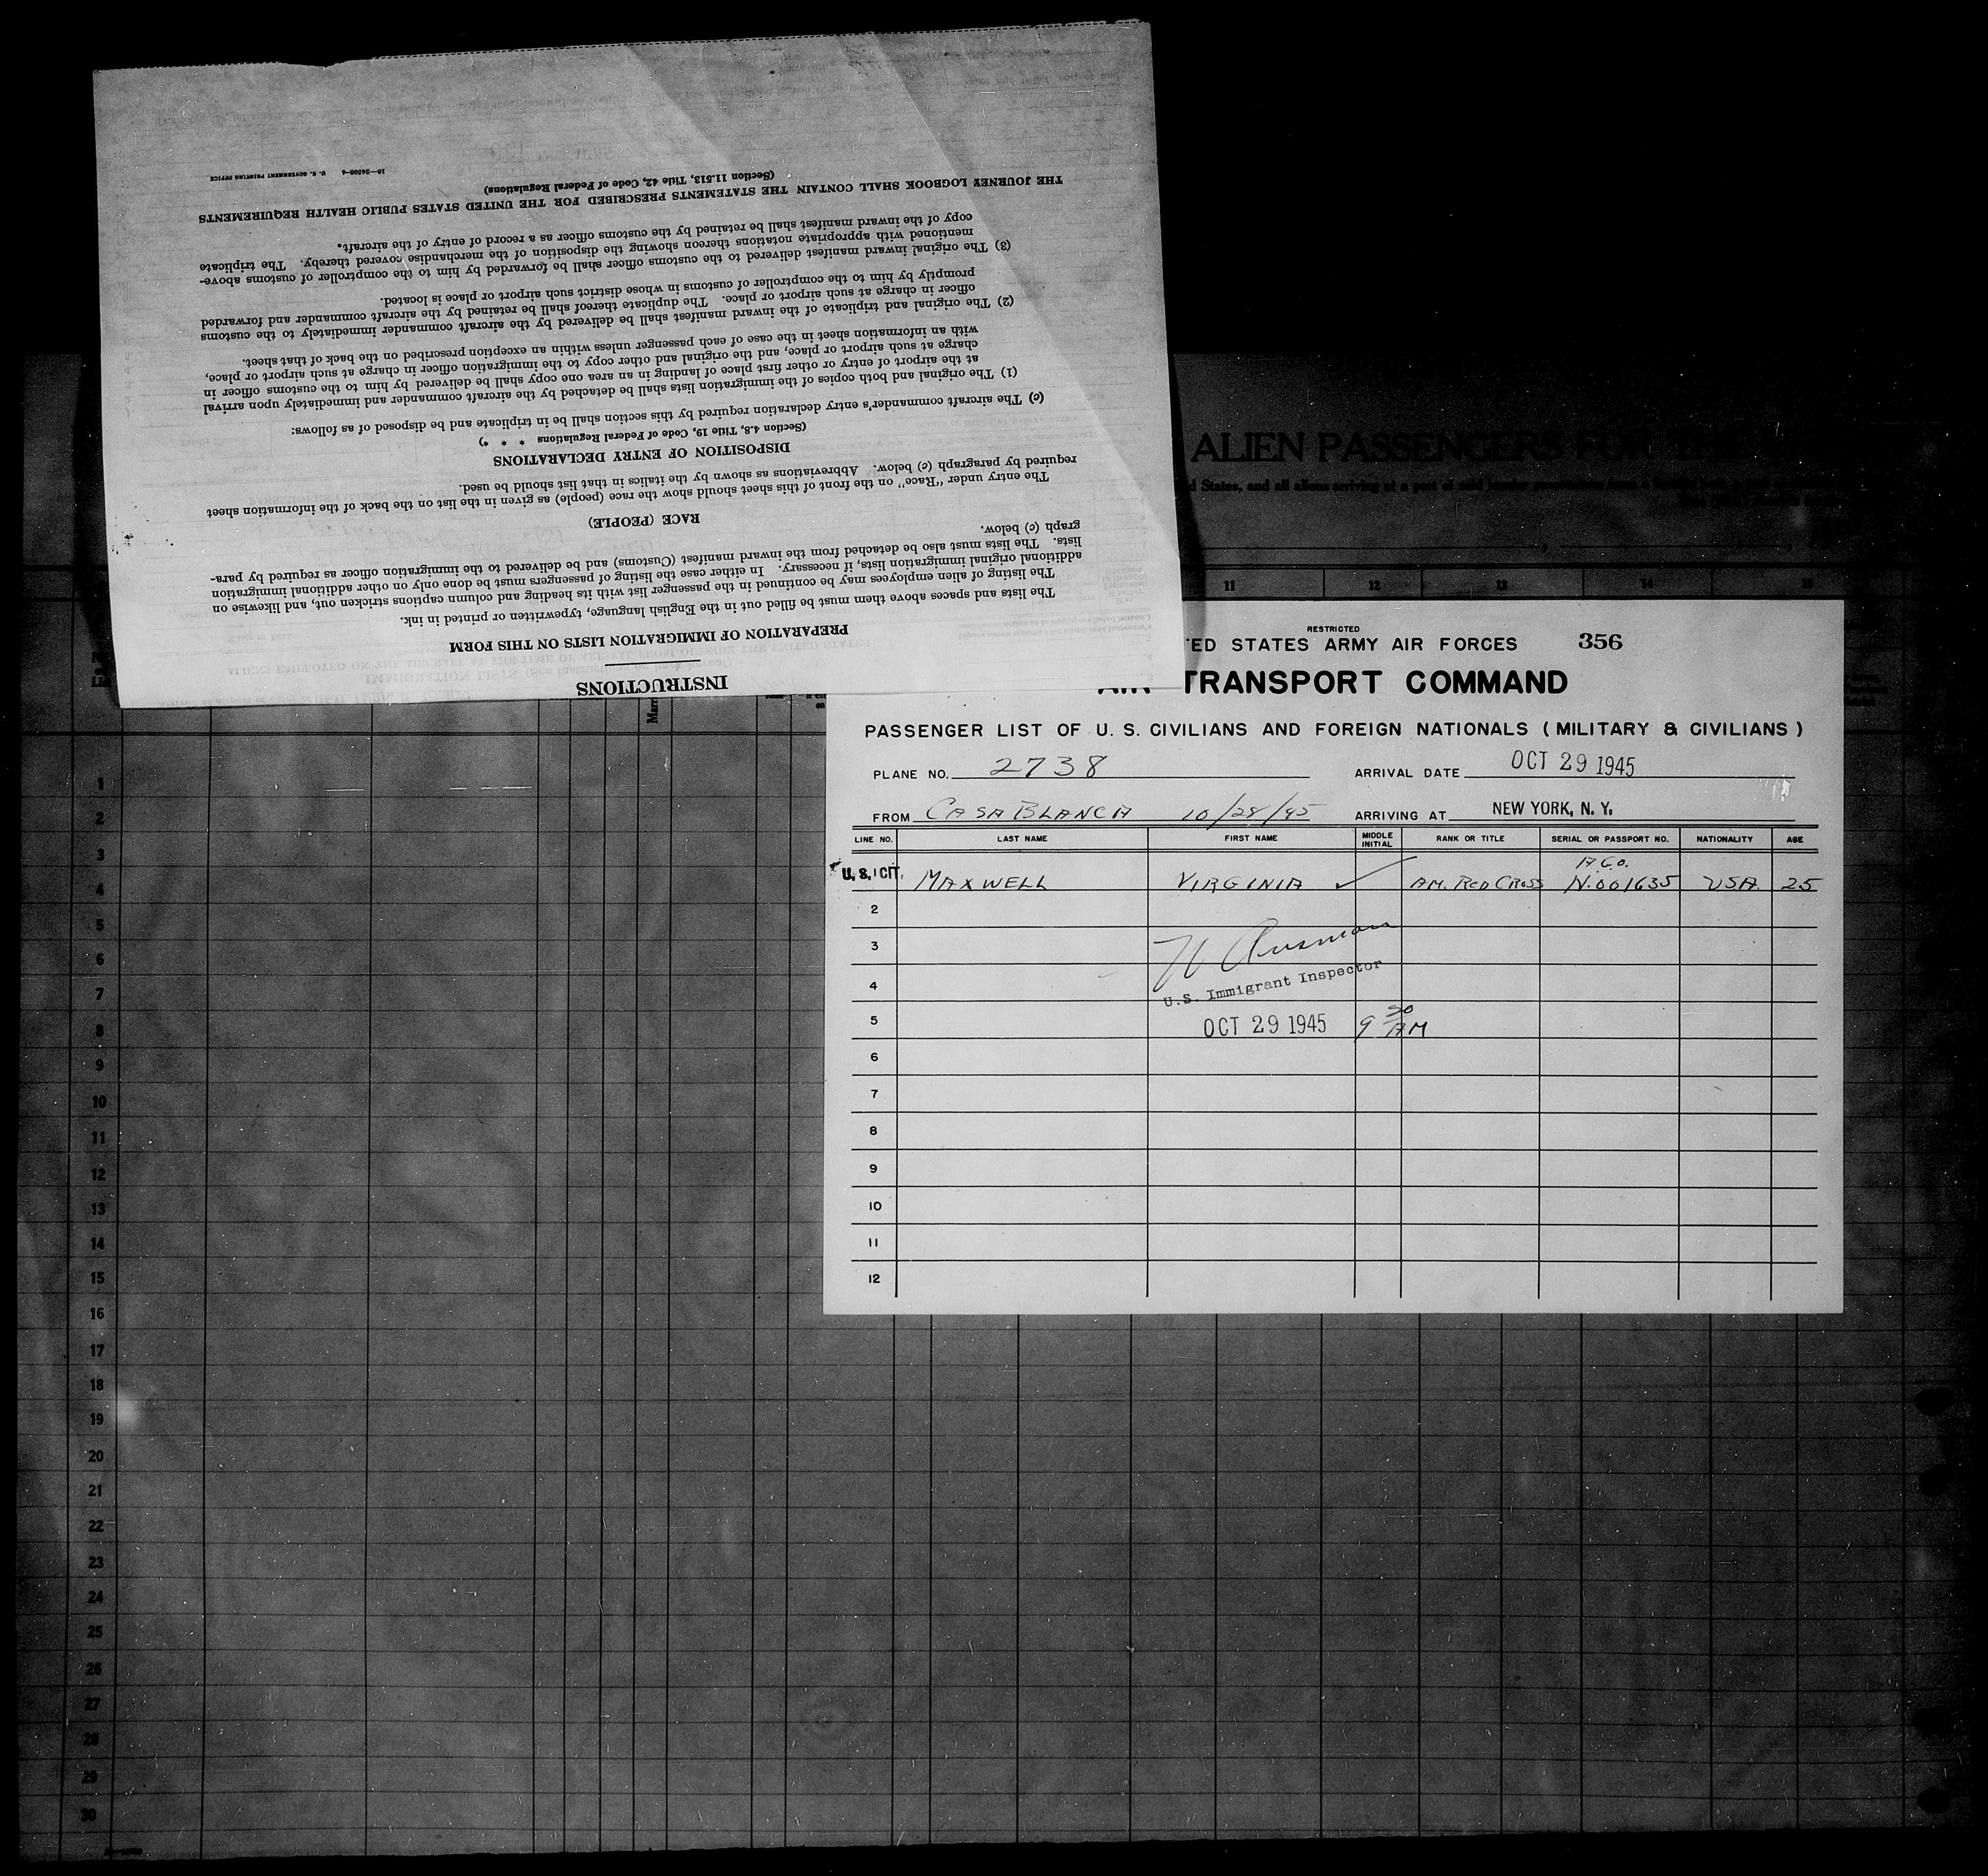 INSTRUCTIONS
PREPARATION OF IMMIGRATION LISTS ON THIS FORM
The lists and spaces above them must be filled out in the English language, typewritten or printed in ink.
The listing of alien employees may be continued in the passenger list with its heading and column captions stricken out, and likewise on
additional original immigration lists, if necessary. In either case the listing of passengers must be done only on other additional immigration
lists. The lists must also be detached from the inward manifest (Customs) and be delivered to the immigration officer as required by para-
graph (c) below.
RACE (PEOPLE)
The entry under "Race" on the front of this sheet should show the race (people) as given in the list on the back of the information sheet
required by paragraph (c) below. Abbreviations as shown by the italics in that list should be used.
DISPOSITION OF ENTRY DECLARATIONS
(Section 4.8, Title 19, Code of Federal Regulations * * *)
(c) The aircraft commander's entry declaration required by this section shall be in triplicate and be disposed of as follows:
(1) The original and both copies of the immigration lists shall be detached by the aircraft commander and immediately upon arrival
at the airport of entry or other first place of landing in an area one copy shall be delivered by him to the customs officer in
charge at such airport or place, and the original and other copy to the immigration officer in charge at such airport or place,
with an information sheet in the case of each passenger unless within an exception prescribed on the back of that sheet.
(2) The original and triplicate of the inward manifest shall be delivered by the aircraft commander immediately to the customs
officer in charge at such airport or place. The duplicate thereof shall be retained by the aircraft commander and forwarded
promptly by him to the comptroller of customs in whose district such airport or place is located.
(3) The original inward manifest delivered to the customs officer shall be forwarded by him to the comptroller of customs above-
mentioned with appropriate notations thereon showing the disposition of the merchandise covered thereby. The triplicate
copy of the inward manifest shall be retained by the customs officer as a record of entry of the aircraft.
THE JOURNEY LOGBOOK SHALL CONTAIN THE STATEMENTS PRESCRIBED FOR THE UNITED STATES PUBLIC HEALTH REQUIREMENTS
(Section 11.513, Title 42, Code of Federal Regulations)
16—24598-4 U. S. GOVERNMENT PRINTING OFFICE
ALIEN PASSENGERS FOR
d States, and all aliens arriving at a port of
11 12 13 14 15
RESTRICTED
TED STATES ARMY AIR FORCES 356
AIR TRANSPORT COMMAND
PASSENGER LIST OF U. S. CIVILIANS AND FOREIGN NATIONALS ( MILITARY & CIVILIANS )
PLANE NO. 2738 ARRIVAL DATE OCT 29 1945
FROM CASABLANCA 10/28/45 ARRIVING AT NEW YORK, N. Y.
LINE NO. LAST NAME FIRST NAME MIDDLE INITIAL RANK OR TITLE SERIAL OR PASSPORT NO. NATIONALITY AGE
A.G.O.
U.S. 1 CIT. MAXWELL VIRGINIA ✓ AM. RED CROSS N.001635 USA. 25
2
3
4
U.S. Immigrant Inspector
5 OCT 29 1945 9 30 AM
6
7
8
9
10
11
12
Marr
1
2
3
4
5
6
7
8
9
10
11
12
13
14
15
16
17
18
19
20
21
22
23
24
25
26
27
28
29
30